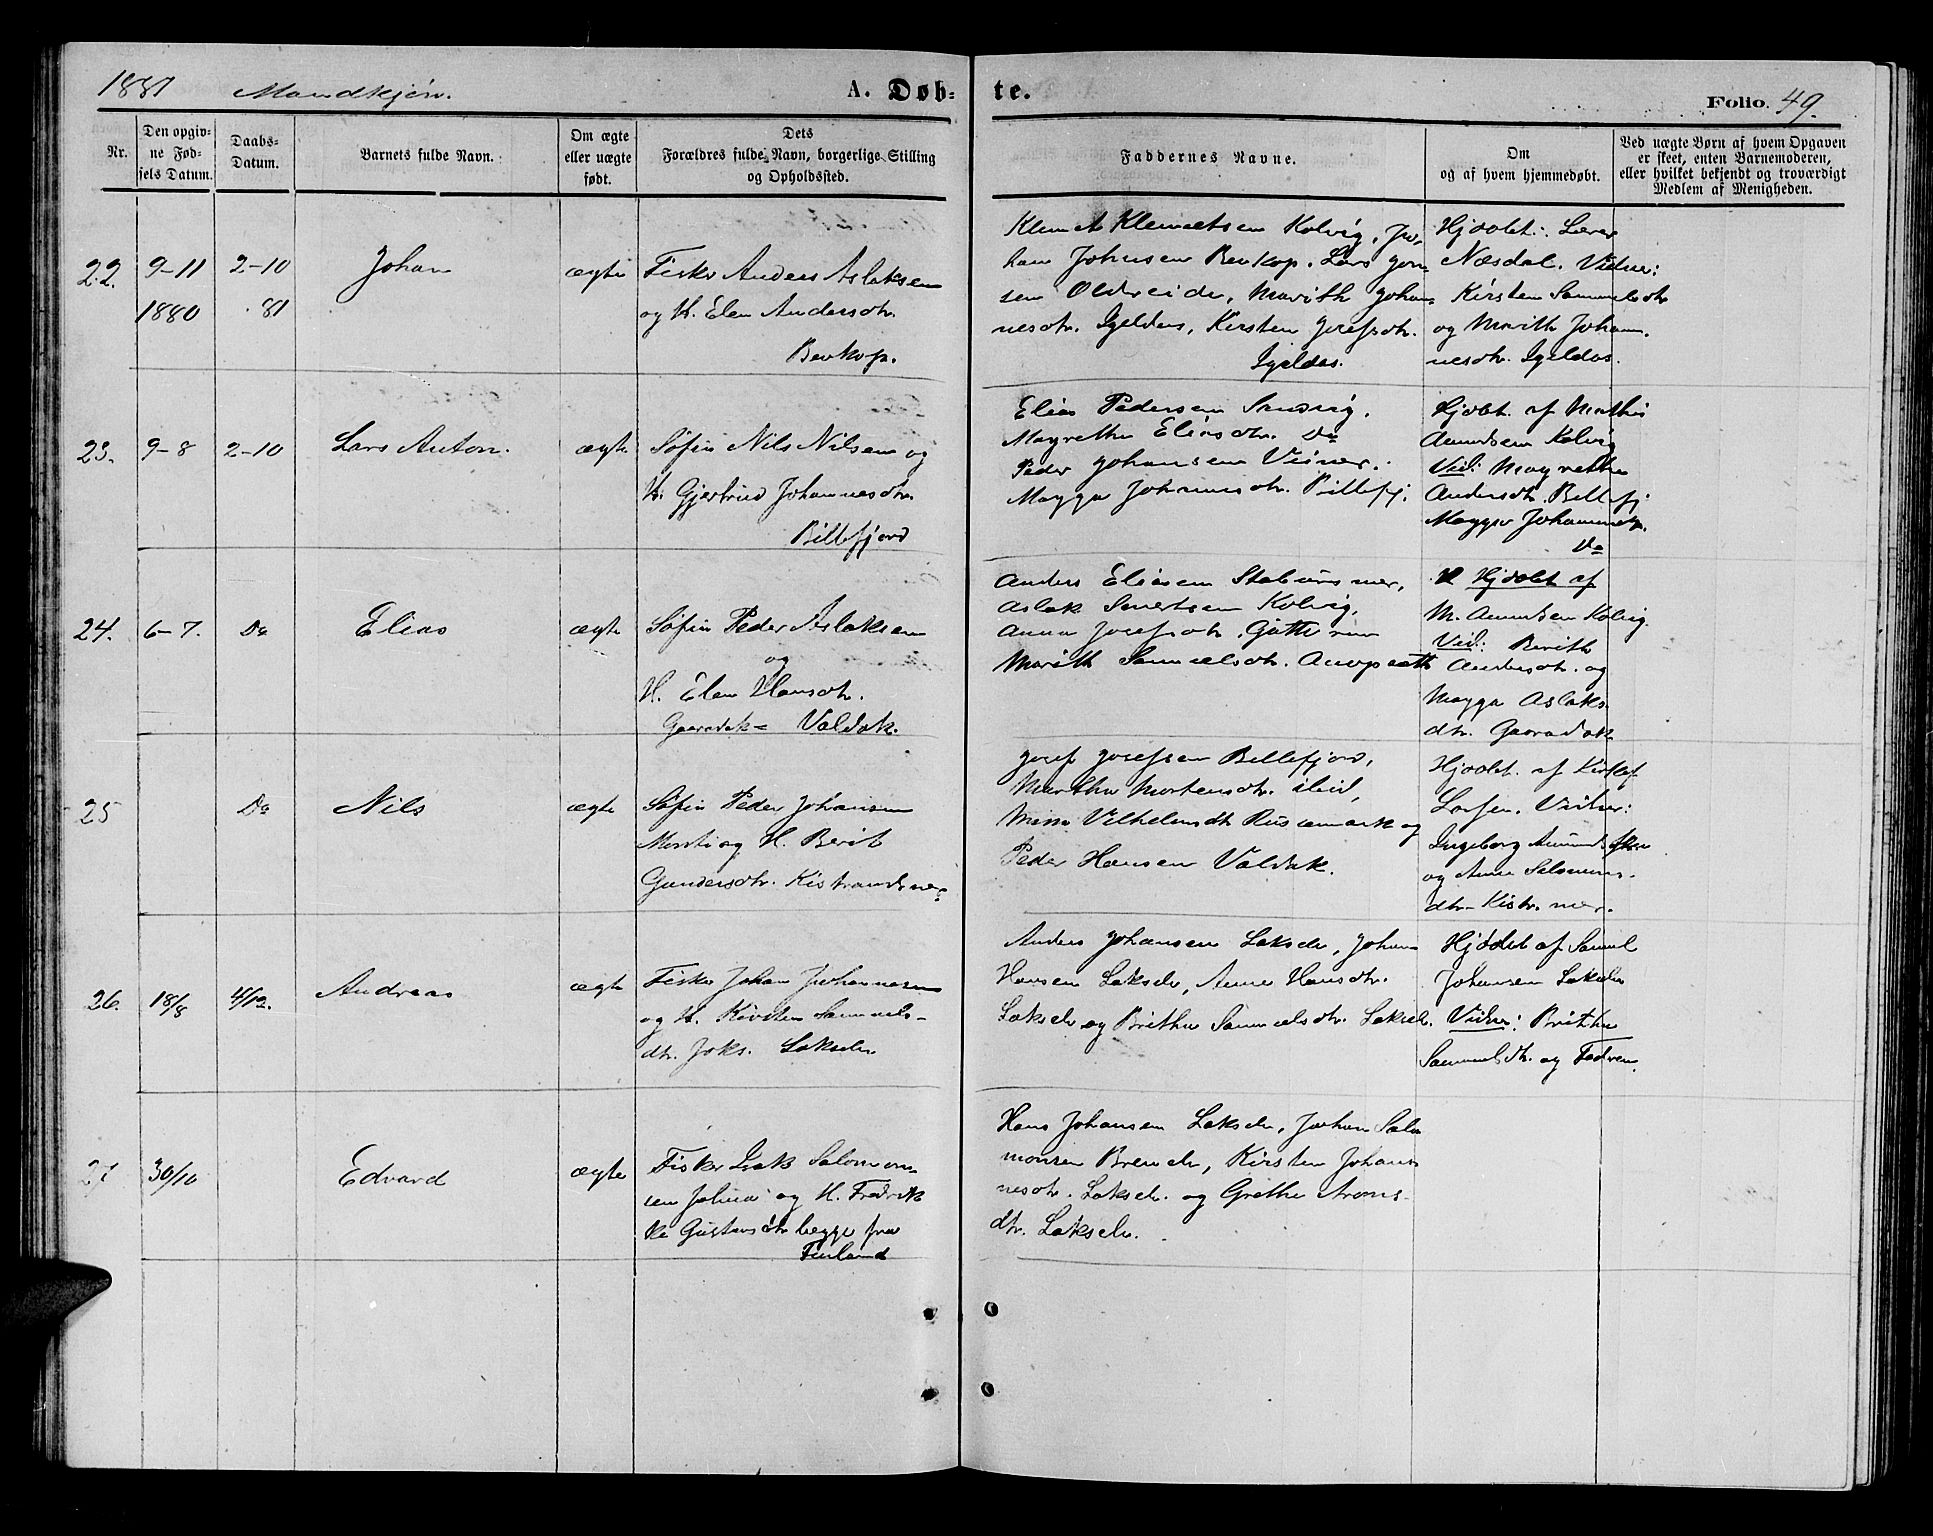 1881 Mandkjøn. A. Døb- te. Folio. 49.
Nr.
Den opgiv-
ne Fød-
sels Datum.
Daabs-
Datum.
Barnets fulde Navn.
Om ægte
eller uægte
født.
Dets
Forældres fulde Navn, borgerlige Stilling
og Opholdssted.
Faddernes Navne.
Om
og af hvem hjemmedøbt.
Ved uægte Børn af hvem Opgaven
er skeet, enten Barnemoderen,
eller hvilket bekjendt og troværdigt
Medlem af Menigheden.
22.
9-11
1880
2-10
81
Johan
ægte
Fisker Anders Aslaksen
og H. Elen Andersdtr.
Bevkop.
Klemet Klemetsen Kolvig, Jo-
han Johnsen Bevkop. Lars
sen Oldereide, Marith Johan-
nesdtr. Igeldas, Kirsten Josefsdtr.
Igeldas.
Hjdøbt. Lærer
Næsdal. Vidner:
Kirsten Samuelsdtr
og Marith Johan-
nesdtr. Igeldas.
23.
9-8
2-10
Lars Anton.
ægte
Søfin Nils Nilsen og
H. Gjertrud Johannesdtr.
Billefjord
Elias Pedersen Sandvig.
Magrethe Eliasdtr. Do
Peder Johansen Veines.
Magga Johannesdtr. Billefj.
Hjdøbt. af Mathis
Amundsen Kolvig
Vid: Magrethe
Andersdtr. Billefj
Magga Johannesdtr.
Do
24.
6-7.
Do
Elias
ægte
Søfin Peder Aslaksen
og
H. Elen Hansdtr.
Gaaradak- Valdak.
Anders Eliasen Stabursnes,
Aslak Kolvig,
Anna Josefsdtr.
Marith Samuelsdtr.
Hjdøbt af
M. Amundsen Kolvig.
Vid: Berith
Andersdtr. og
Magga Aslaks-
dtr. Gaaradak
25
Do
Nils
ægte
Søfin Peder Johansen
og H. Berit
Gundersdtr. Kistrandsnes
Josef Josefsen Billefjord,
Martha Mortensdtr. ibid,
Vilhelmsdtr og
Peder Hansen Valdak.
Hjdøbt. af
Larsen. Vidner:
Ingeborg
og Anne Salomons-
dtr- Kistr. nes.
26.
18/8
4/12.
Andreas
ægte
Fisker Johan Johannesen
og H. Kirsten Samuels-
dtr. Joks. Lakselv
Anders Johansen Lakselv, Johan
Hansen Lakselv, Anne Hansdtr.
Lakselv og Brithe Samuelsdtr. Lakselv.
Hjdøbt af Samuel
Johansen Lakselv
Vidner: Brithe
Samuelsdtr. og Fadren.
27
30/10
Edvard
ægte
Fisker Isak Salomon-
sen Johna og H. Fredrik
ke Gustavsdtr begge fra
Finland
Hans Johansen Lakselv, Johan Salo
monsen Brenelv, Kirsten Johan-
nesdtr. Lakselv. og Grethe Arons-
dtr. Lakselv.